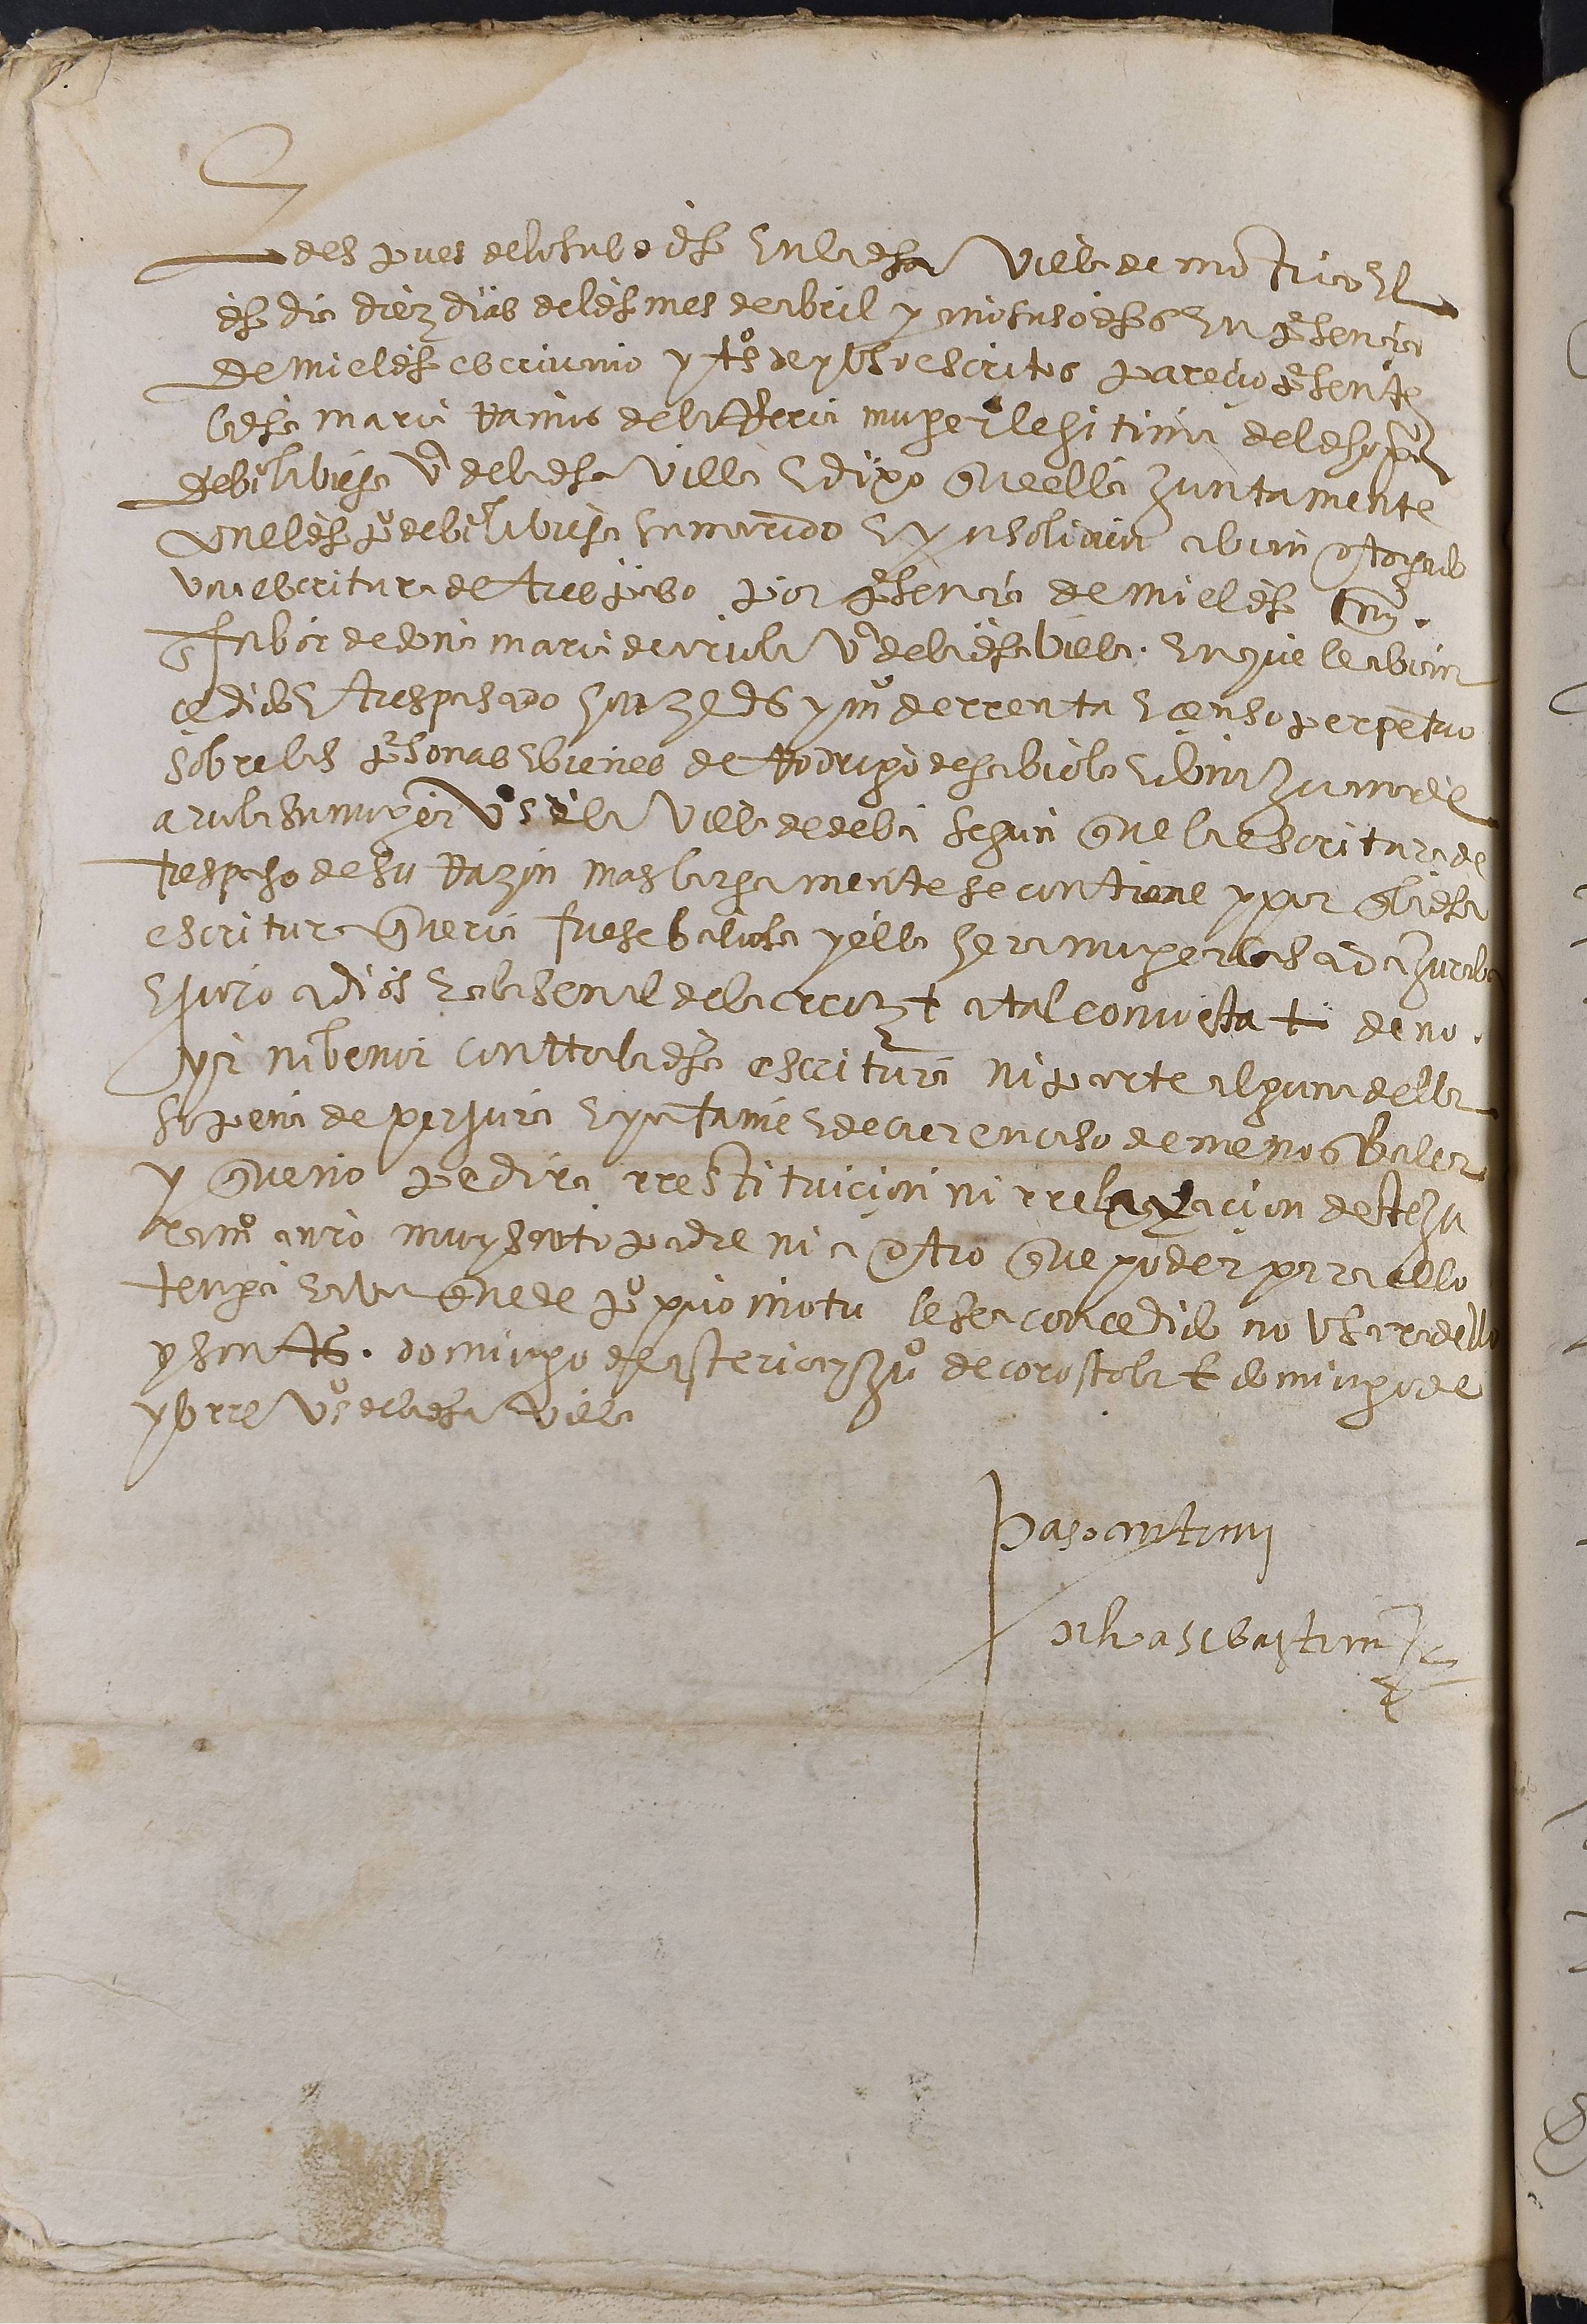 E despues de lo suso dho en la dha villa de motrico el
dho dia diez dias del dho mes de abril y año suso dhos en presencia
de mi el dho escriuano y tos de yuso escritos parecio presente
la dha maria muger legitima del dho po
vo de la dha villa e dixo que ella juntamente
con el dho po su marido e ynsolidun abian otorgado
vna escritura de traspaso por presencia de mi el dho
en fabor de doña maria de arriola va de la dha villa en que le abian
cedido e traspasado y mo de rrenta e censo perpetuo
sobre las personas e bienes de Rodrigo de
arriola su muger vos de la villa de deba segun que la escritura de
traspaso de su Razon mas largamente se contiene y por que la dha
escritura queria fuese baliosa y ella hera muger casada juraba
e juro a dios e a la señal de la cruz + a tal como esta + de no
yr ni benir contra la dha escritura ni parte alguna della
so pena de perjura e ynfame e de caer en caso de menos baler
y que no pedira rrestituicion ni rrelaxacion deste ju
ramo a nro muy santo padre ni a otro que poder para ello
tenga e avn que de propio motu le sea concedido no vsara dello
y son ts. domingo de y juo de corostola e domingo de
yturre vos de la dha villa
Paso ante mi